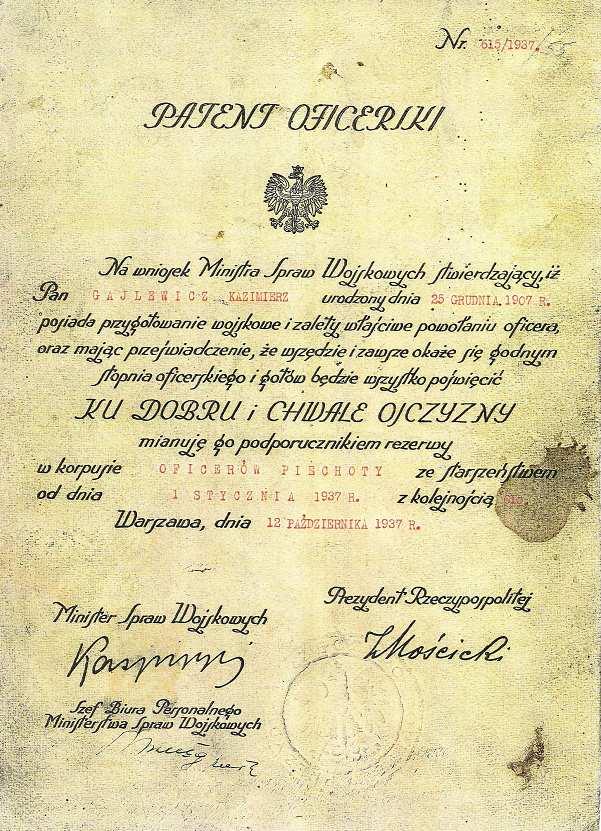 Nr. 615/1937.
PATENT OFICERSKI
Na wniosek Ministra Spraw Wojskowych stwierdzający, iż
Pan GAJLEWICZ KAZIMIERZ urodzony dnia 25 GRUDNIA 1907 R.
posiada przygotowanie wojskowe i zalety właściwe powołaniu oficera,
oraz mając przeświadczenie, że wszędzie i zawsze okaże się godnym
stopnia oficerskiego i gotów będzie wszystko poświęcić
KU DOBRU i CHWALE OJCZYZNY
mianuję go podporucznikiem rezerwy
w korpusie OFICERÓW PIECHOTY ze starszeństwem
od dnia 1 STYCZNIA 1937 R. z kolejnością
Warszawa, dnia 12 PAŹDZIERNIKA 1937 R.
Prezydent Rzeczypospolitej
IMościcki
Minister Spraw Wojskowych
Szef Biura Personalnego
Ministerstwa Spraw Wojskowych